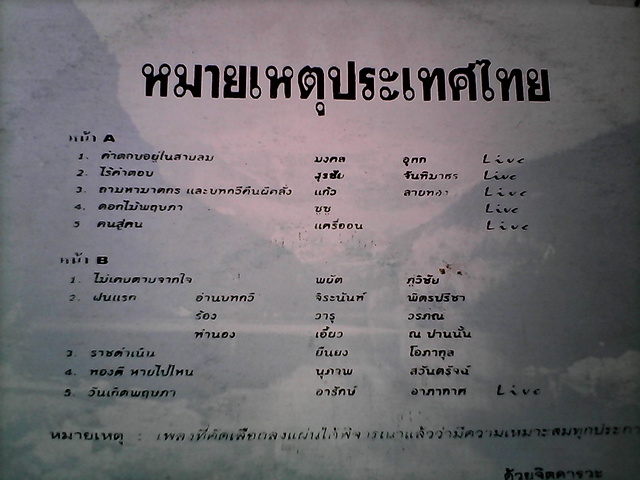 หมายเหตุประเทศไทย
หน้า A
1. คำตอบอยู่ในสายลม มงคล อุทก Live
2. ไร้คำตอบ สุรชัย จันทิมาธร Live
3. ถามหามาตกร และบทกวีคืนผีคลั่ง แก้ว ลายทอง Live
4. ดอกไม้พฤษภา ซูซู Live
5 คนสู่คน แคร์ออน Live
หน้า B
1. ไม่เคยตายจากใจ พยัต ภูวิชัย
2. ฝนแรก อ่านบทกวี จิระนันท์ พิตรปรีชา
ร้อง วารุ วรภณ
ทำนอง เอี้ยว ณ ปานนั้น
3 ราชดำเนิน ยืนยง โอภากุล
4 ทองดี หายไปไหน นุภาพ สวันตรัจน์
5 วันเกิดพฤษภา อารักษ์ อาภากาศ Live
หมายเหตุ : เพลงที่คัดเลือกลงแผ่นได้พิจารณาแล้วว่ามีความเหมาะสมทุกประกา
ด้วยจิตคารวะ